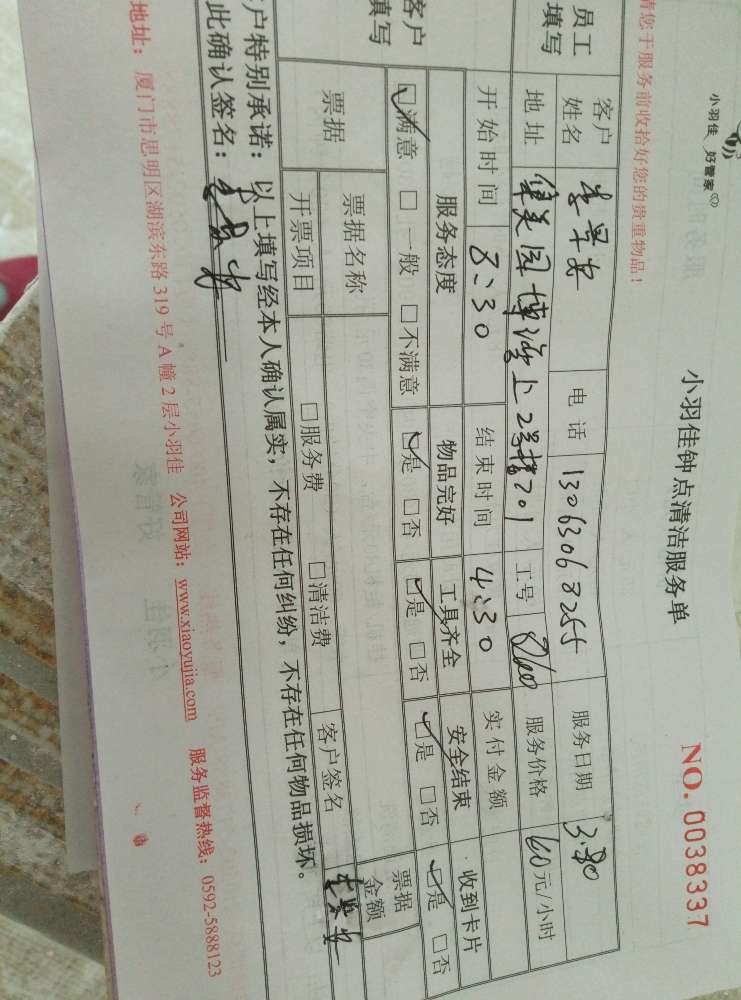 小羽佳 好管家
小羽佳钟点清洁服务单
NO. 0038337
请您于服务前收拾好您的贵重物品！
员工填写 客户姓名 电话 13063068255 服务日期
地址 2号楼201 工号 服务价格 60元/小时
开始时间 8:30 结束时间 4:30 实付金额
客户填写 服务态度 物品完好 工具齐全 安全结束 收到卡片
☑满意 □一般 □不满意 ☑是 □否 ☑是 □否 ☑是 □否 ☑是 □否
票据 票据名称 票据金额
开票项目 □服务费 □清洁费 客户签名
客户特别承诺：以上填写经本人确认属实，不存在任何纠纷，不存在任何物品损坏。
此确认签名：
地址：厦门市思明区湖滨东路319号A幢2层小羽佳 公司网站：www.xiaoyujia.com 服务监督热线：0592-5888123